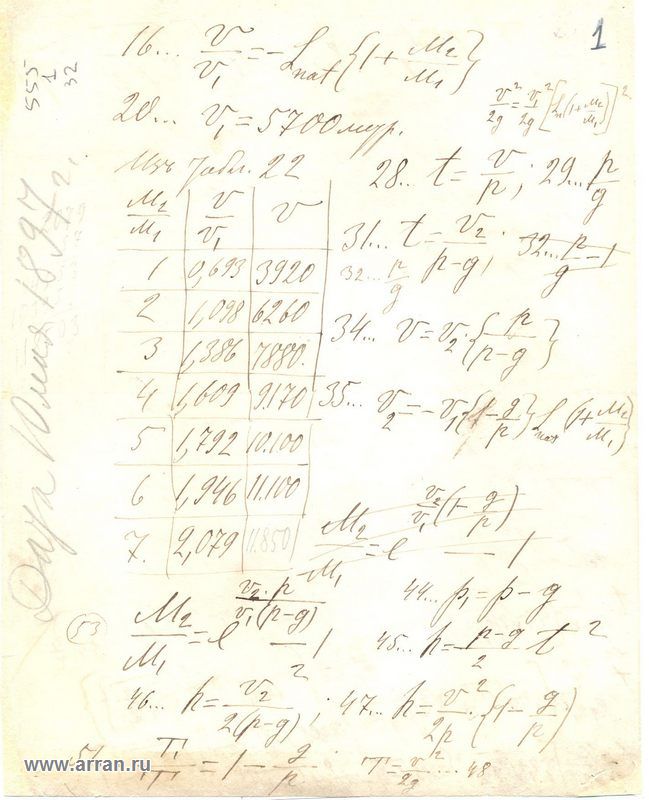 1
555
1
32
16... v/v₁ = - L nat {1 + M₂/M₁}
20... v₁ = 5700 метр.
v²/2g = v₁²/2g [L n (1 + M₂/M₁)]².
Изъ табл. 22
M₂/M₁ | v/v₁ | v
1 | 0,693 | 3920
2 | 1,098 | 6260
3 | 1,386 | 7880.
4 | 1,609 | 9.170
5 | 1,792 | 10.100
6 | 1,946 | 11.100
7. | 2,079 | 11.850
28.. t = v/p; 29... p/g
31... t = v₂/(p-g); 32... p/g - 1
32... p/g
34... v = v₂ · {p/(p-g)}
35... v₂ = - v₁ {1 - g/p} L nat (1 + M₂/M₁)
M₂/M₁ = e^(v₂/v₁ (1 - g/p)) - 1
53
M₂/M₁ = e^(v₂·p/v₁(p-g)) - 1
44... p₁ = p - g
45... h = (p-g)/2 t²
46... h = v₂²/2(p-g); 47... h = v²/2p · {1 - g/p}
51. T₁/T = 1 - g/p T = v²/2g ... 48
Дата 1897 г.
www.arran.ru